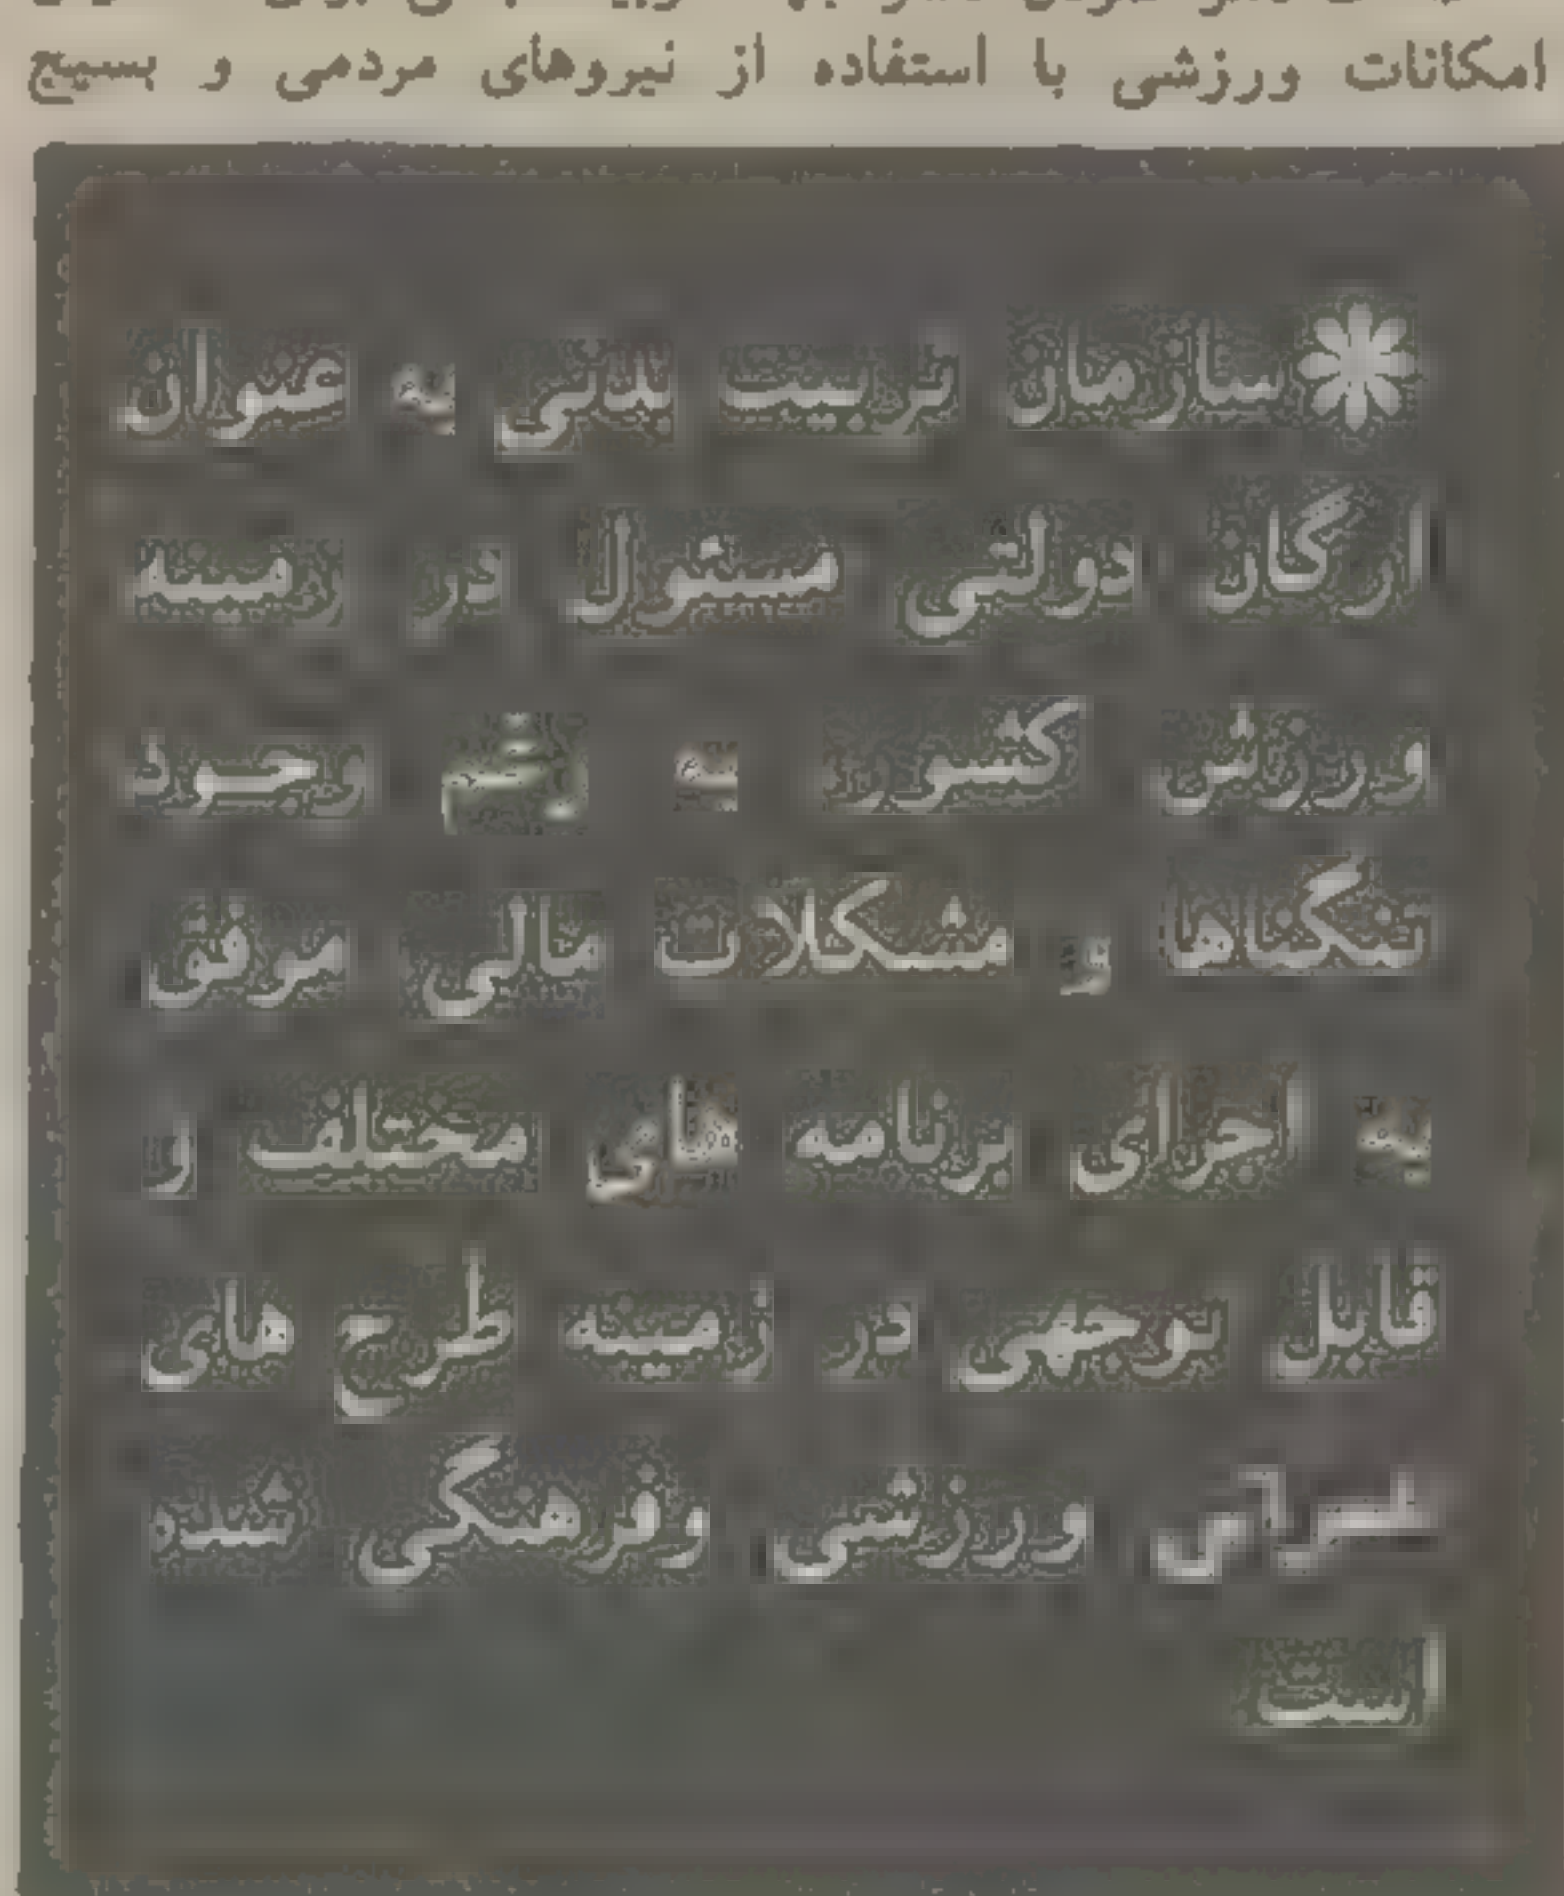 امکانات ورزشی با استفاده از نیروهای مردمی و بسیج
سازمان تربیت بدنی به عنوان
ارگان دولتی مسئول در زمینه
ورزش کشور به رغم وجود
تنگناها و مشکلات مالی موفق
به اجرای برنامه های مختلف و
قابل توجهی در زمینه طرح های
عمرانی ورزشی وفرهنگی شده
است